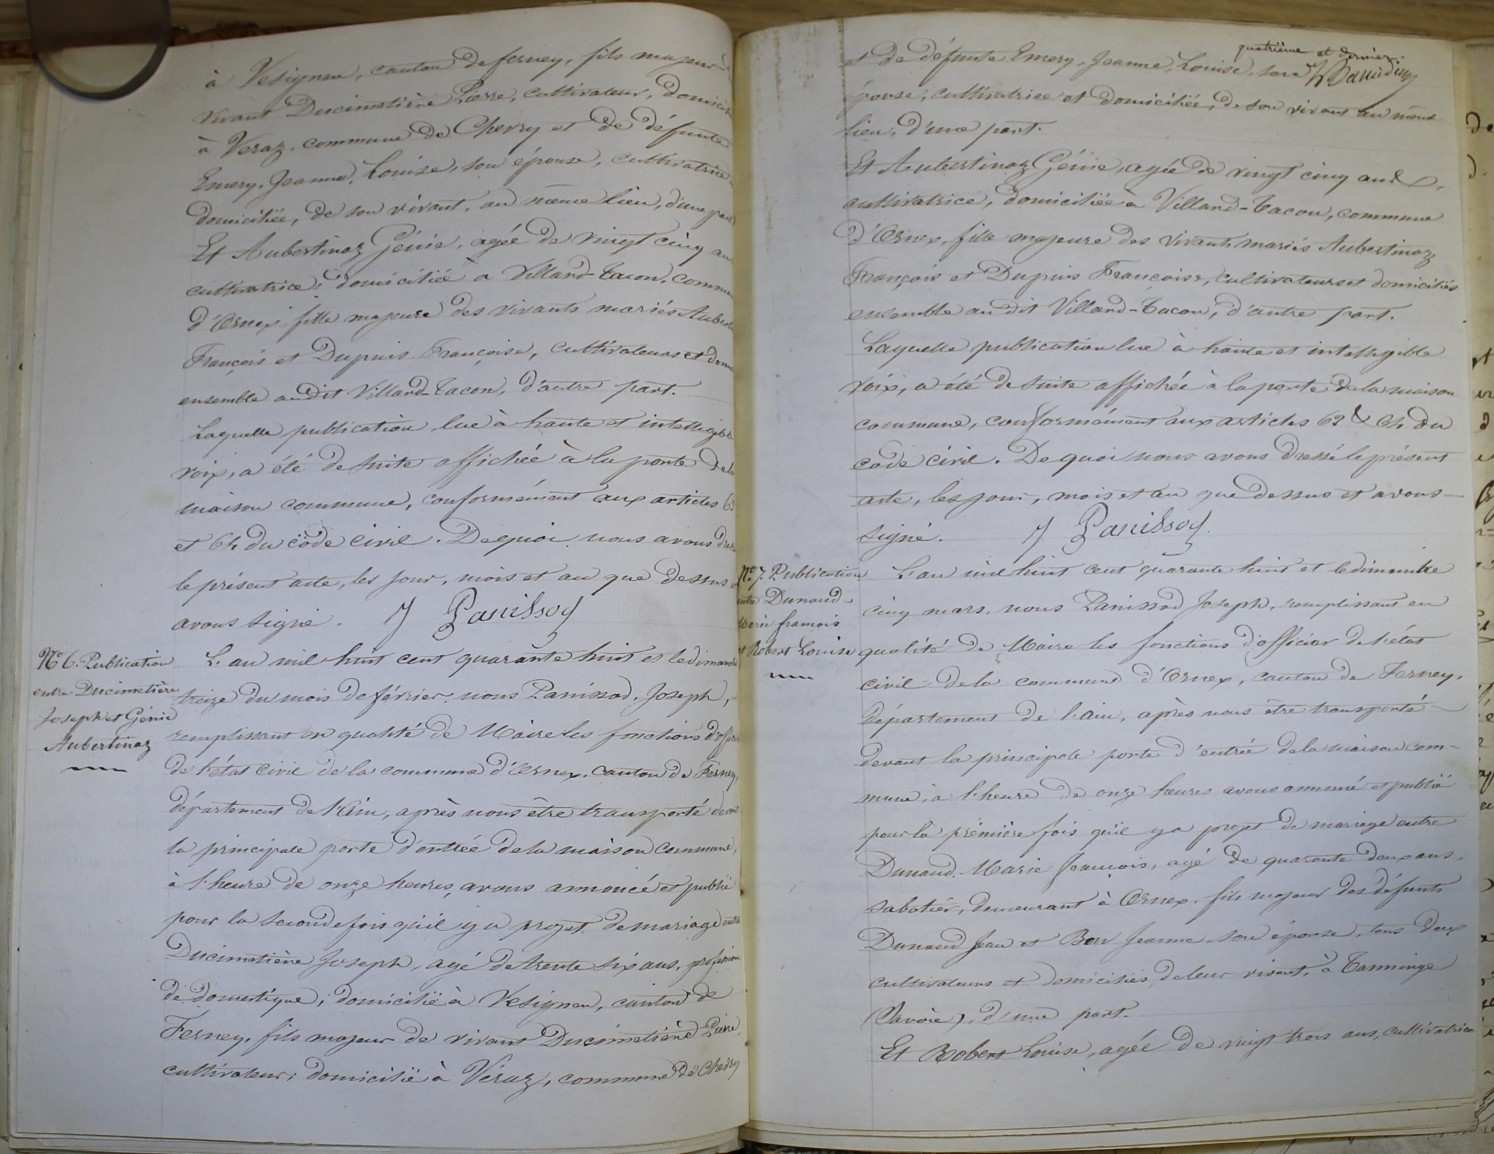 à Vésignin, canton de ferney, fils majeur de
vivant Ducimetière Pierre, cultivateur, domicilié
à Véraz, commune de Chevry et de défunte
Emery, Jeanne, Louise, son épouse, cultivatrice
domiciliée, de son vivant, au même lieu, d'une part
Et Aubertinaz Génie, agée de vingt cinq ans
cultivatrice, domicilié à Villard-tacon, commune
d'Ornex, fille majeure des vivants mariés Aubert
François et Dupuis Françoise, cultivateurs et dom
ensemble au dit Villard-Tacon, d'autre part.
Laquelle publication, lue à haute et intelligible
voix, a été de suite affichée à la porte de la
maison commune, conformément aux articles 63
et 64 du côde civil. De quoi nous avons dres
le présent acte, les jour, mois et an que dessus et
avons signé. J Panissod
Nº 6. Publication
entre Ducimetière
Joseph et Génie
Aubertinaz
L'an mil huit cent quarante huit et le dimanche
treize du mois de février, nous Panissod, Joseph,
remplissant en qualité de Maire les fonctions d'officier
de l'état civil de la commune d'Ornex, canton de Ferney,
département de l'Ain, après nous être transporté devant
la principale porte d'entrée de la maison commune,
à l'heure de onze heures, avons annoncé et publié
pour la seconde fois qu'il y a projet de mariage entre
Ducimetière Joseph, agé de trente six ans, profession
de domestique, domicilié à Vésignin, canton de
Ferney, fils majeur de vivant Ducimetière Pierre
cultivateur, domicilié à Véraz, commune de Chevry
quatrième et dernier.
et de défunte Emery, Jeanne, Louise, son J Panissod
épouse, cultivatrice et domiciliée, de son vivant au même
lieu, d'une part.
Et Aubertinaz Génie, agée de vingt cinq ans,
cultivatrice, domiciliée à Villard-Tacon, commune
d'Ornex, fille majeure des vivants mariés Aubertinaz
François et Dupuis Françoise, cultivateurs et domiciliés
ensemble au dit Villard-Tacon, d'autre part.
Laquelle publication lue à haute et intelligible
voix, a été de suite affichée à la porte de la maison
commune, conformément aux articles 63 & 64 du
côde civil. De quoi nous avons dressé le présent
acte, les jour, mois et an que dessus et avons
signé. J Panissod
Nº 7. Publication
entre Dunand
Marie francois
et Robert Louise
L'an mil huit cent quarante huit et le dimanche
cinq mars, nous Panissod Joseph, remplissant en
qualité de Maire les fonctions d'officier de l'état
civil de la commune d'Ornex, canton de Ferney,
Département de l'ain, après nous être transporté
devant la principale porte d'entrée de la maison com-
mune, à l'heure de onze heures avons annoncé et publié
pour la première fois qu'il y a projet de mariage entre
Dunand Marie françois, agé de quarante deux ans,
sabotier, demeurant à Ornex, fils majeur des défunts
Dunand Jean et Jeanne son épouse, tous deux
cultivateurs et domiciliés, de leur vivant, à Tanninge
(Savoie), d'une part.
Et Robert Louise, agée de vingt trois ans, cultivatrice